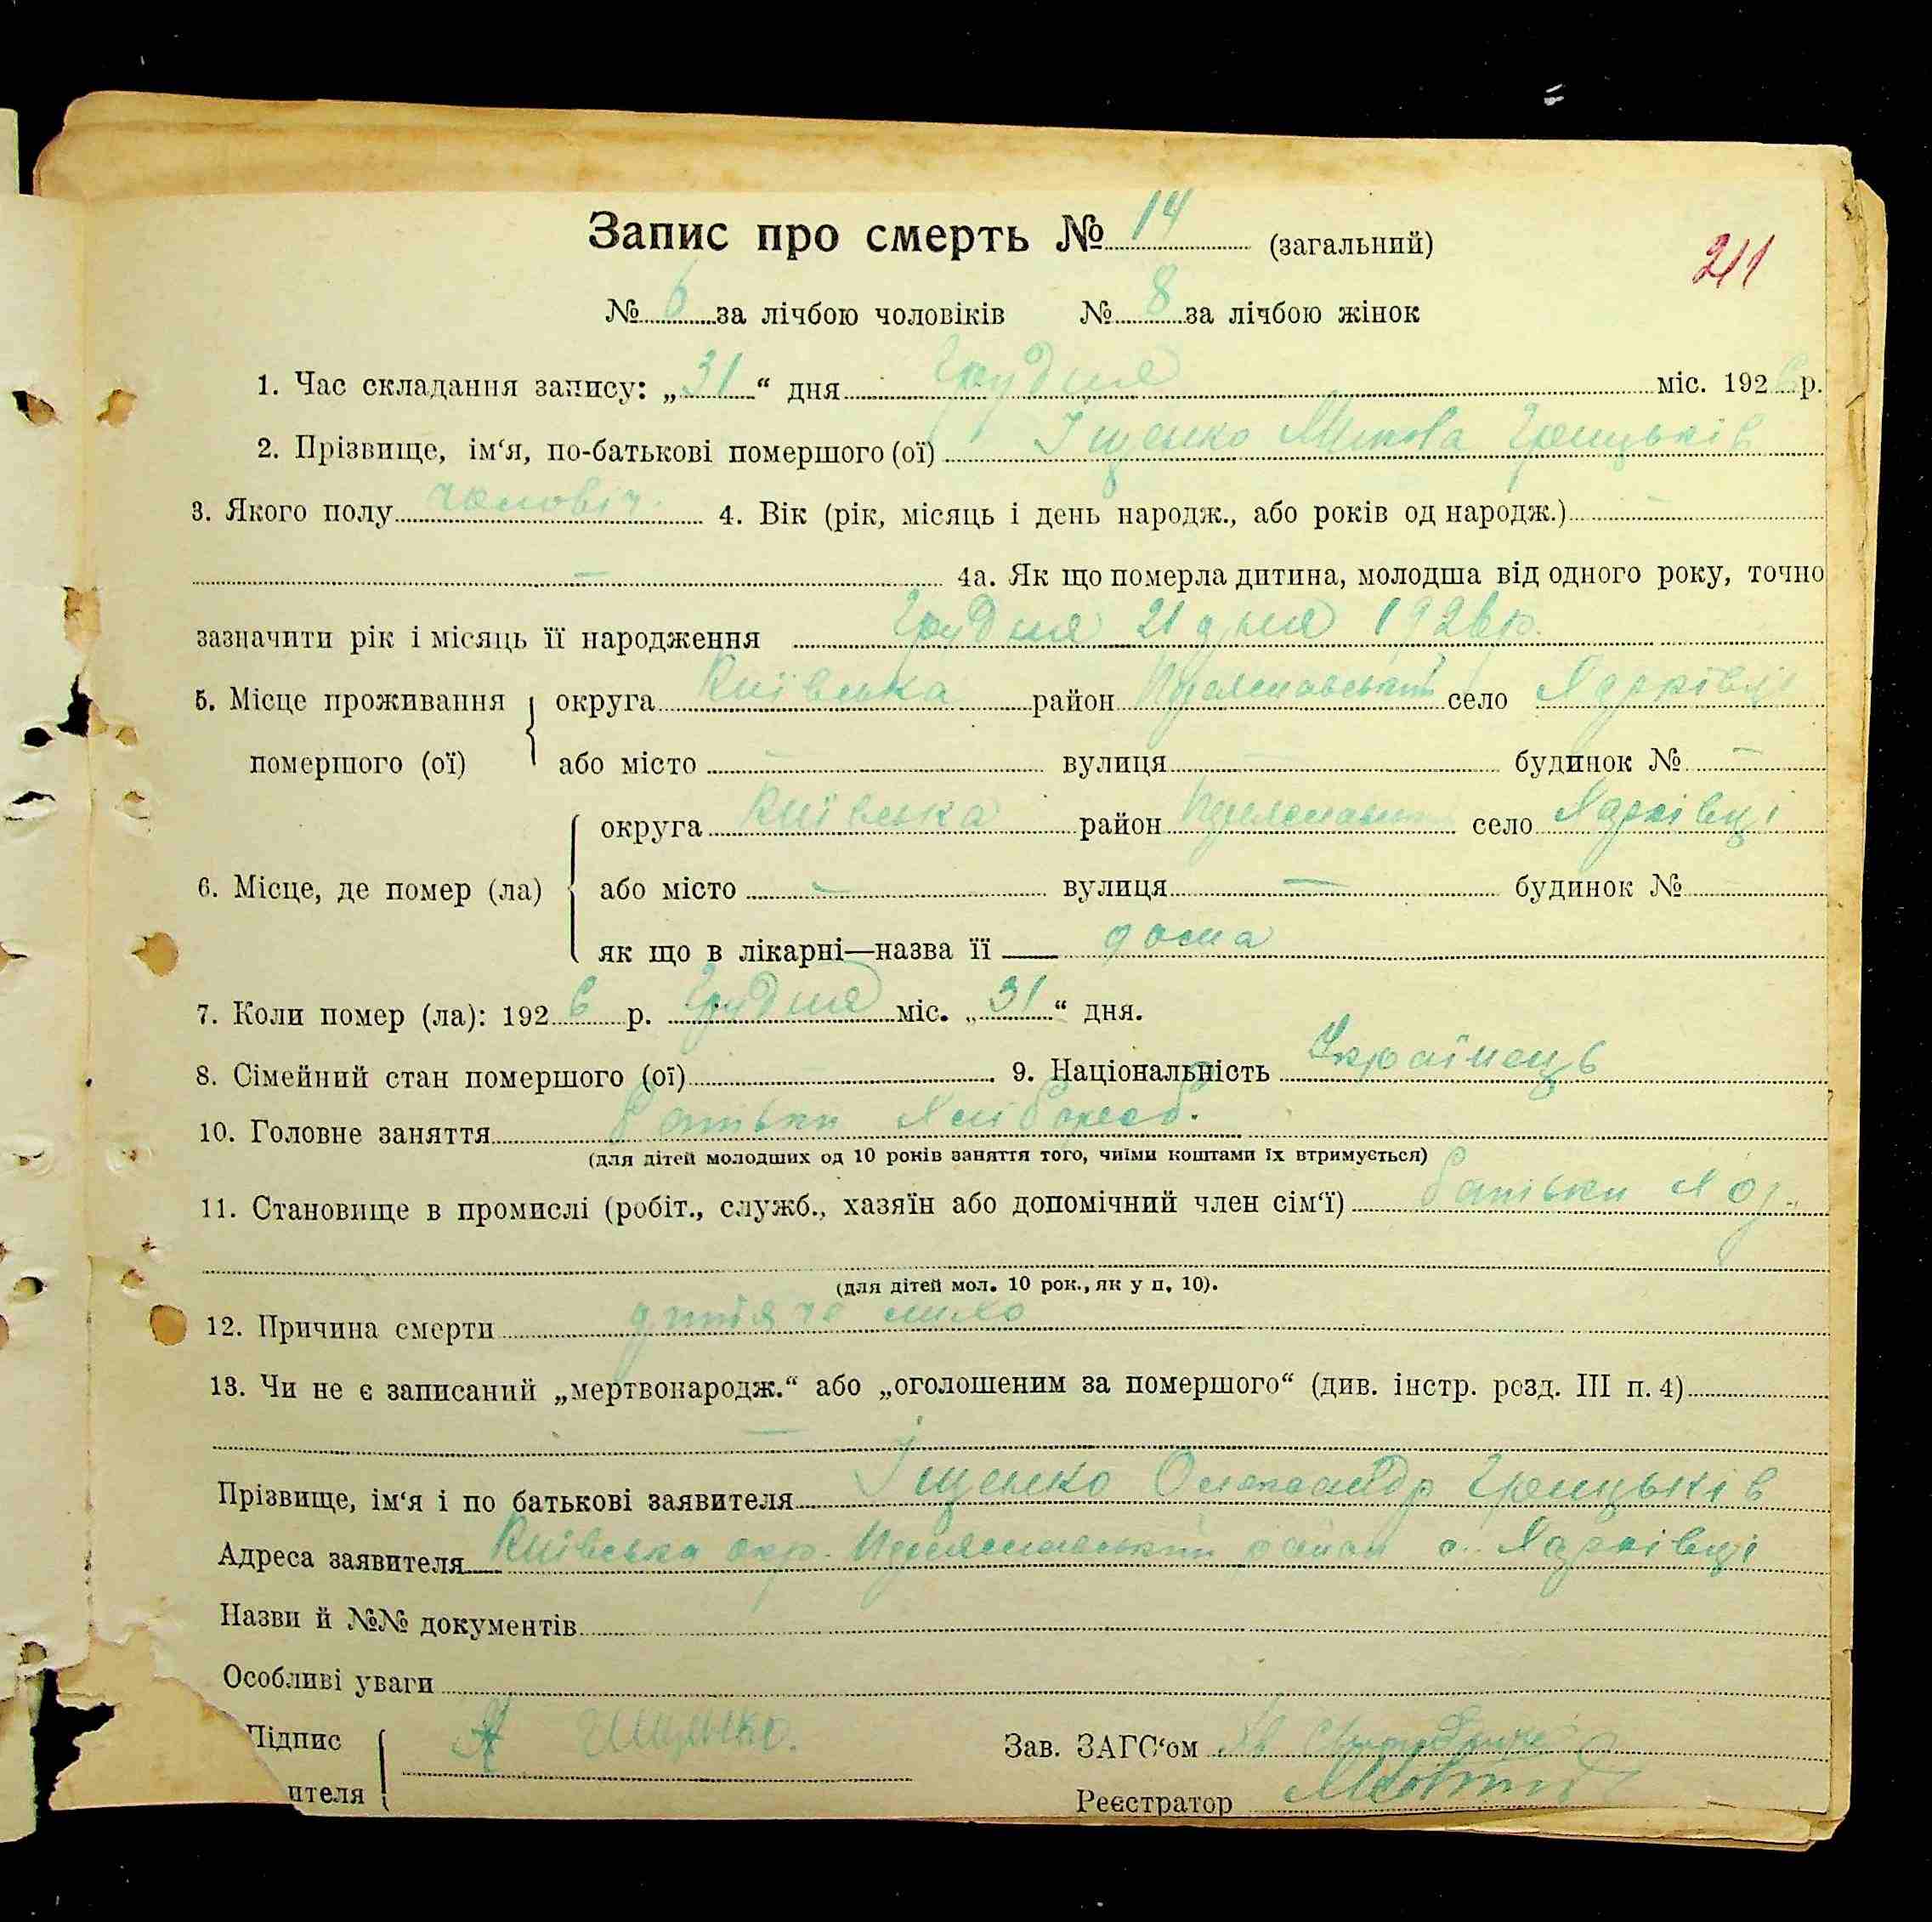 Запис про смерть № 14 (загальний)
211
№ 6 за лічбою чоловіків № 8 за лічбою жінок
1. Час складання запису: „31“ дня Грудня міс. 1926 р.
2. Прізвище, ім‘я, по-батькові помершого (ої) Іщенко Микола Грицьків
3. Якого полу чоловіч. 4. Вік (рік, місяць і день народж., або років од народж.) —
— 4а. Як що померла дитина, молодша від одного року, точно
зазначити рік і місяць її народження Грудня 21 дня 1926 р.
5. Місце проживання округа Київська район село
помершого (ої) або місто — вулиця — будинок № —
округа Київська район село
6. Місце, де помер (ла) або місто — вулиця — будинок №
як що в лікарні—назва її дома
7. Коли помер (ла): 1926 р. Грудня міс. „31“ дня.
8. Сімейний стан помершого (ої) — 9. Національність Українець
10. Головне заняття батьки Хлібороб.
(для дітей молодших од 10 років заняття того, чиїми коштами їх втримується)
11. Становище в промислі (робіт., служб., хазяїн або допомічний член сім‘ї) батьки
(для дітей мол. 10 рок., як у п. 10).
12. Причина смерти дитяче лихо
13. Чи не є записаний „мертвонародж.“ або „оголошеним за помершого“ (див. інстр. розд. III п. 4)
—
Прізвище, ім‘я і по батькові заявителя Іщенко Олександр Грицьків
Адреса заявителя Київська окр. район с.
Назви й №№ документів
Особливі уваги
Підпис А Іщенко. Зав. ЗАГС‘ом
ителя Реєстратор